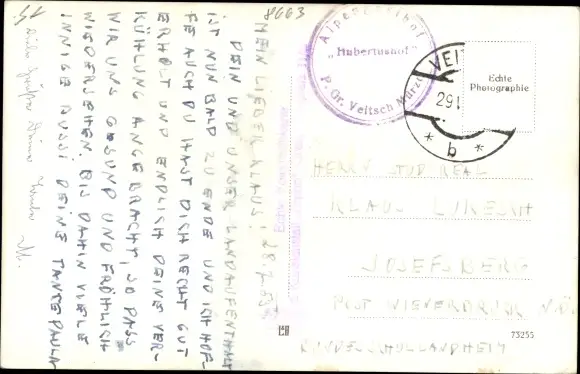 8663
MEIN LIEBER KLAUS! 28.7.53
DEIN UND UNSER LANDAUFENTHALT
IST NUN BALD ZU ENDE UND ICH HOF-
FE AUCH DU HAST DICH RECHT GUT
ERHOLT UND ENDLICH DEINE VER-
KÜHLUNG ANGEBRACHT, SO DASS
WIR UNS GESUND UND FRÖHLICH
WIEDERSEHEN. BIS DAHIN VIELE
INNIGE BUSSI DEINE TANTE PAULA
Alpengasthof
"Hubertushof"
P. Gr. Veitsch Mürzt
VEIT
29
* b *
Echte
Photographie
HERRN STUD REAL
KLAUS
JOSEFSBERG
POST WIENERBRUCK N.Ö.
73255